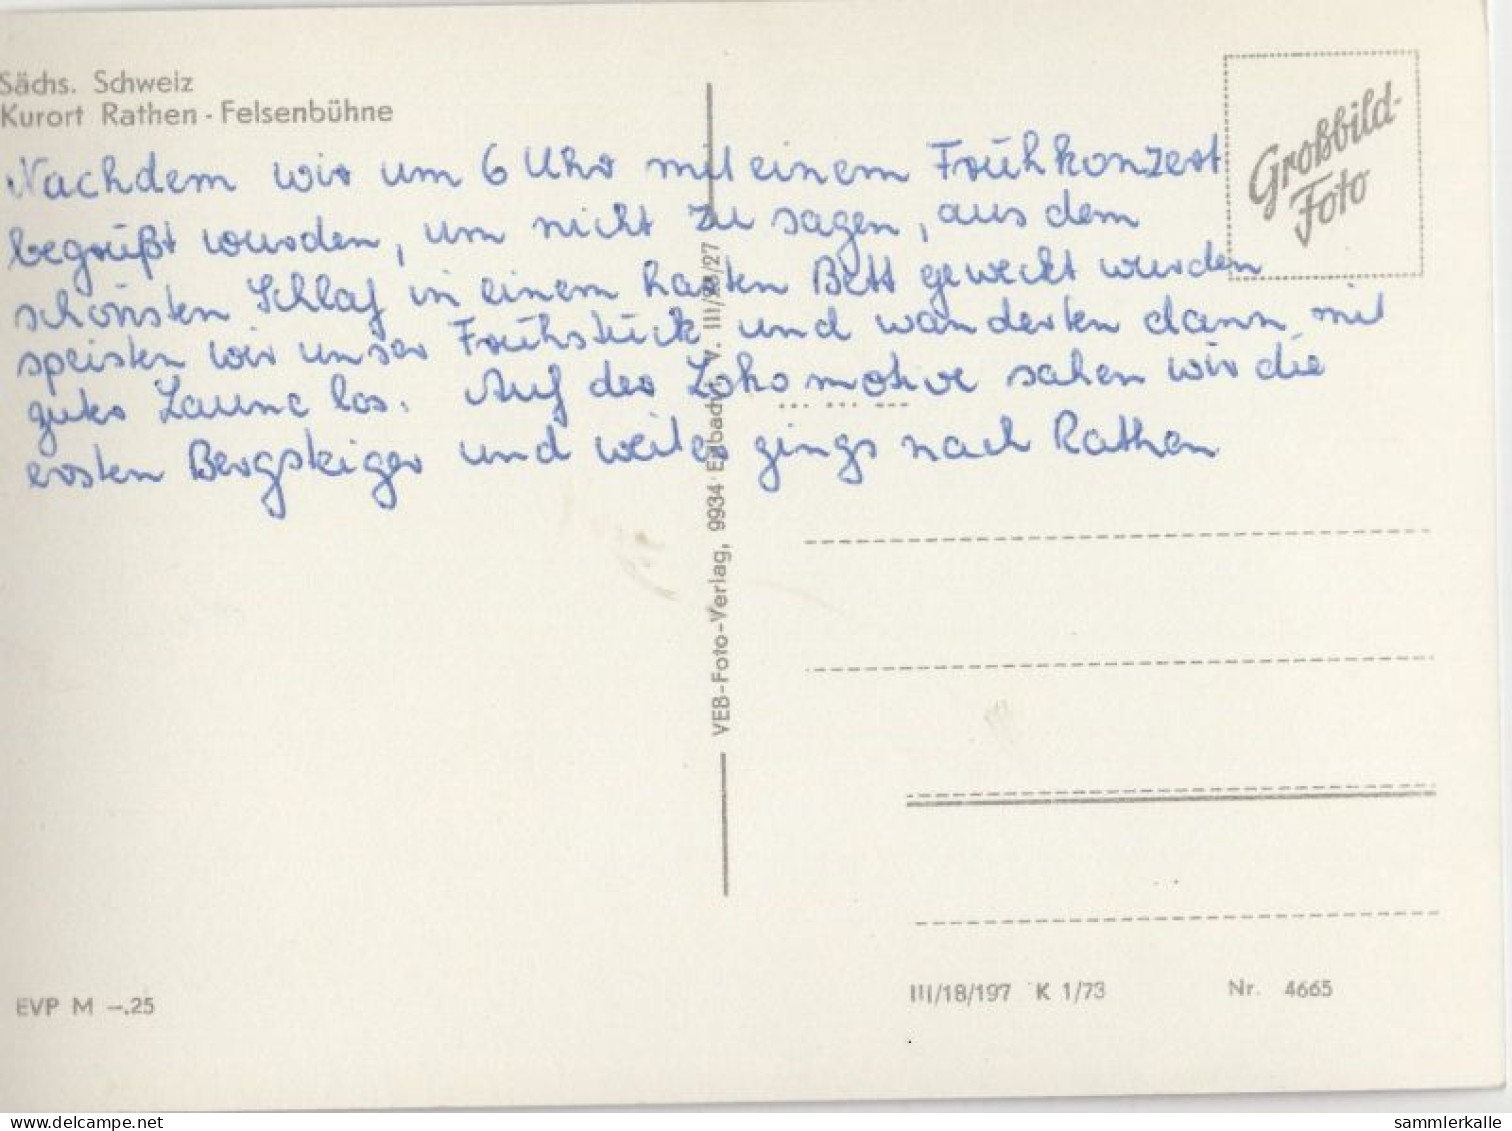 Sächs. Schweiz
Kurort Rathen - Felsenbühne
Großbild-
Foto
Nachdem wir um 6 Uhr mit einem Frühkonzert
begrüßt wurden, um nicht zu sagen, aus dem
schönsten Schlaf in einem harten Bett geweckt wurden
speisten wir unser Frühstück und wanderten dann mit
guter Laune los. Auf der Lokomotive sahen wir die
ersten Bergsteiger und weiter gings nach Rathen
VEB-Foto-Verlag, 9934 Erlbach V. III/28/27
EVP M -.25
III/18/197 K 1/73
Nr. 4665
delcampe.net
sammlerkalle